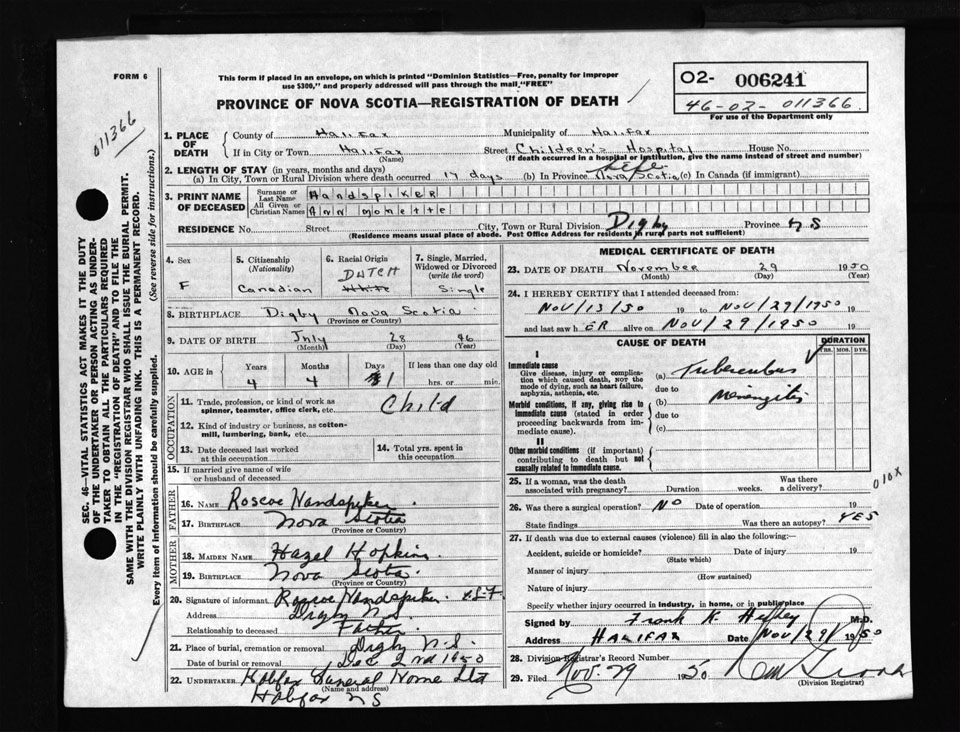 FORM 6
This form if placed in an envelope, on which is printed "Dominion Statistics—Free, penalty for improper
use $300," and properly addressed will pass through the mail "FREE"
PROVINCE OF NOVA SCOTIA—REGISTRATION OF DEATH
02- 006241
46-02-011366
For use of the Department only
011366
SEC. 46—VITAL STATISTICS ACT MAKES IT THE DUTY
OF THE UNDERTAKER OR PERSON ACTING AS UNDER-
TAKER TO OBTAIN ALL THE PARTICULARS REQUIRED
IN THE "REGISTRATION OF DEATH" AND TO FILE THE
SAME WITH THE DIVISION REGISTRAR WHO SHALL ISSUE THE BURIAL PERMIT.
WRITE PLAINLY WITH UNFADING INK. THIS IS A PERMANENT RECORD.
Every item of information should be carefully supplied. (See reverse side for instructions.)
1. PLACE OF DEATH
County of Halifax Municipality of Halifax
If in City or Town Halifax Street Children's Hospital House No.
(Name) (If death occurred in a hospital or institution, give the name instead of street and number)
2. LENGTH OF STAY (in years, months and days)
(a) In City, Town or Rural Division where death occurred 17 days (b) In Province Life Nova Scotia (c) In Canada (if immigrant)
3. PRINT NAME OF DECEASED
Surname or Last Name Handspiker
All Given or Christian Names Ann Monette
RESIDENCE No. Street City, Town or Rural Division Digby Province NS
(Residence means usual place of abode. Post Office Address for residents in rural parts not sufficient)
4. Sex F
5. Citizenship (Nationality) Canadian
6. Racial Origin DUTCH White
7. Single, Married, Widowed or Divorced (write the word) Single
8. BIRTHPLACE Digby Nova Scotia
(Province or Country)
9. DATE OF BIRTH July 28 46
(Month) (Day) (Year)
10. AGE IN Years Months Days If less than one day old
4 4 1 hrs. or min.
OCCUPATION
11. Trade, profession or kind of work as spinner, teamster, office clerk, etc. Child
12. Kind of industry or business, as cotton-mill, lumbering, bank, etc.
13. Date deceased last worked at this occupation
14. Total yrs. spent in this occupation
15. If married give name of wife or husband of deceased
FATHER
16. NAME Roscoe Handspiker
17. BIRTHPLACE Nova Scotia
(Province or Country)
MOTHER
18. MAIDEN NAME Hazel Hopkins
19. BIRTHPLACE Nova Scotia
(Province or Country)
20. Signature of informant Roscoe Handspiker
Address Digby N.S.
Relationship to deceased Father
21. Place of burial, cremation or removal Digby N.S.
Date of burial or removal Dec 2nd 1950
22. UNDERTAKER Halifax Funeral Home Ltd
(Name and address)
Halifax NS
MEDICAL CERTIFICATE OF DEATH
23. DATE OF DEATH November 29 1950
(Month) (Day) (Year)
24. I HEREBY CERTIFY that I attended deceased from:
Nov/13/50 19 to Nov/29/1950 19
and last saw h ER alive on Nov/29/1950 19
CAUSE OF DEATH
DURATION
YRS. MOS. DYS.
I
Immediate cause
Give disease, injury or complication which caused death, not the mode of dying, such as heart failure, asphyxia, asthenia, etc.
(a) Tuberculous
due to
(b) Meningitis
Morbid conditions, if any, giving rise to immediate cause (stated in order proceeding backwards from immediate cause).
due to
(c)
II
Other morbid conditions (if important) contributing to death but not causally related to immediate cause.
25. If a woman, was the death associated with pregnancy? Duration weeks. Was there a delivery?
010X
26. Was there a surgical operation? No Date of operation 19
State findings Was there an autopsy? YES
27. If death was due to external causes (violence) fill in also the following:—
Accident, suicide or homicide? Date of injury 19
(State which)
Manner of injury
(How sustained)
Nature of injury
Specify whether injury occurred in industry, in home, or in public place
Signed by Frank K. M.D.
Address HALIFAX Date Nov/29/1950
28. Division Registrar's Record Number
29. Filed Nov. 29 1950
(Division Registrar)